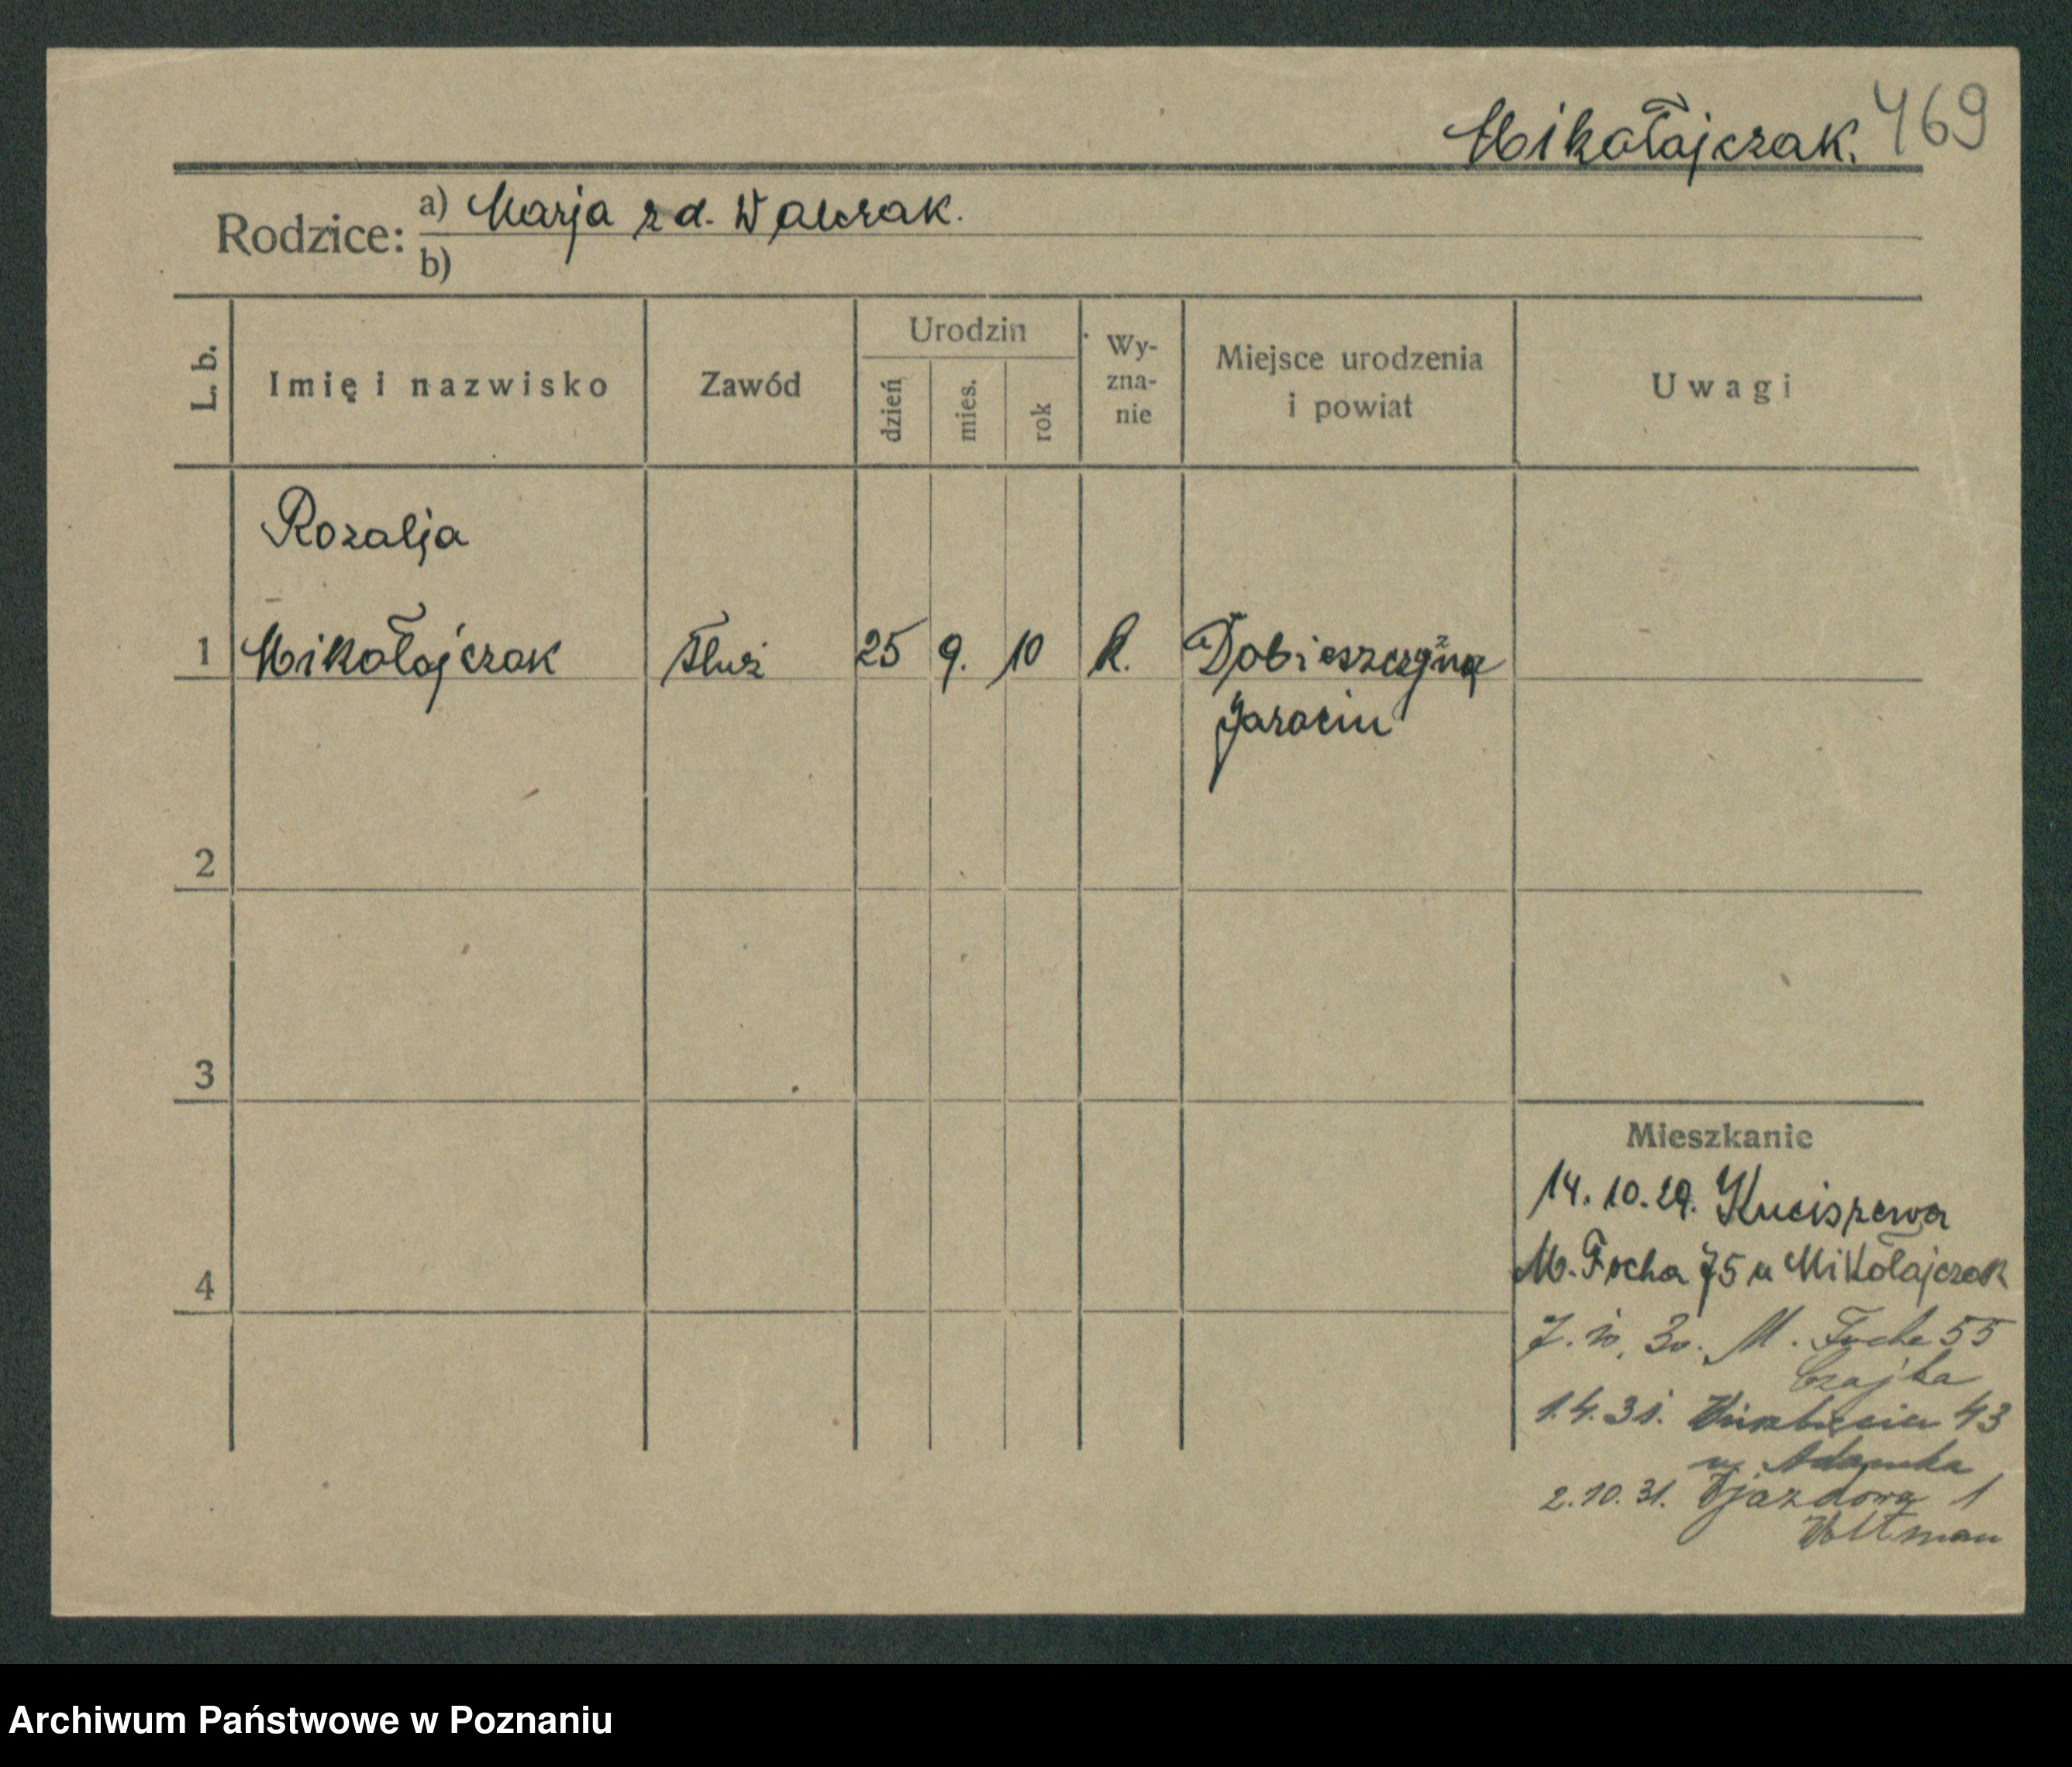 469
Mikołajczak.
Rodzice: a) Marja z d. Walczak.
b)
L. b.
Imię i nazwisko
Zawód
Urodzin
dzień
mies.
rok
Wy-
zna-
nie
Miejsce urodzenia
i powiat
Uwagi
Rozalja
1 Mikołajczak Służ 25 9. 10 k.
Jarocin
2
3
4
Mieszkanie
14. 10. 29.
M. Focha 75 u Mikołajczak
7. 10. 30. M. Focha 55
Czajka
1. 4. 31. 43
2. 10. 31. 1
Archiwum Państwowe w Poznaniu